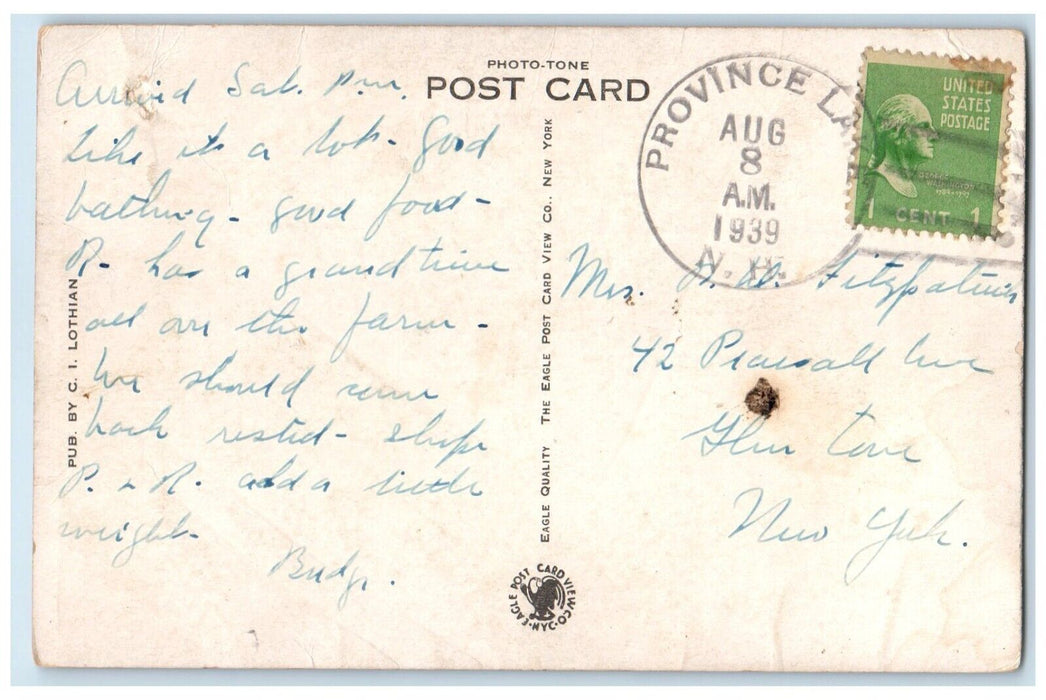 PHOTO-TONE
POST CARD
Arrived Sat. P.m.
Like it a lot - Good
bathing - good food -
R- has a grand time
all over the farm -
We should come
back rested -
P. & R. add a little
weight -
Budg.
PUB. BY C. I. LOTHIAN
EAGLE QUALITY THE EAGLE POST CARD VIEW CO., NEW YORK
EAGLE POST CARD VIEW CO. N.Y.C.
PROVINCE LA
AUG
8
A.M.
1939
N. H.
UNITED
STATES
POSTAGE
GEORGE
WASHINGTON
1789-1797
1 CENT 1
Mrs. Fitzpatrick
42 Pearsall Ave
Glen Cove
New York.